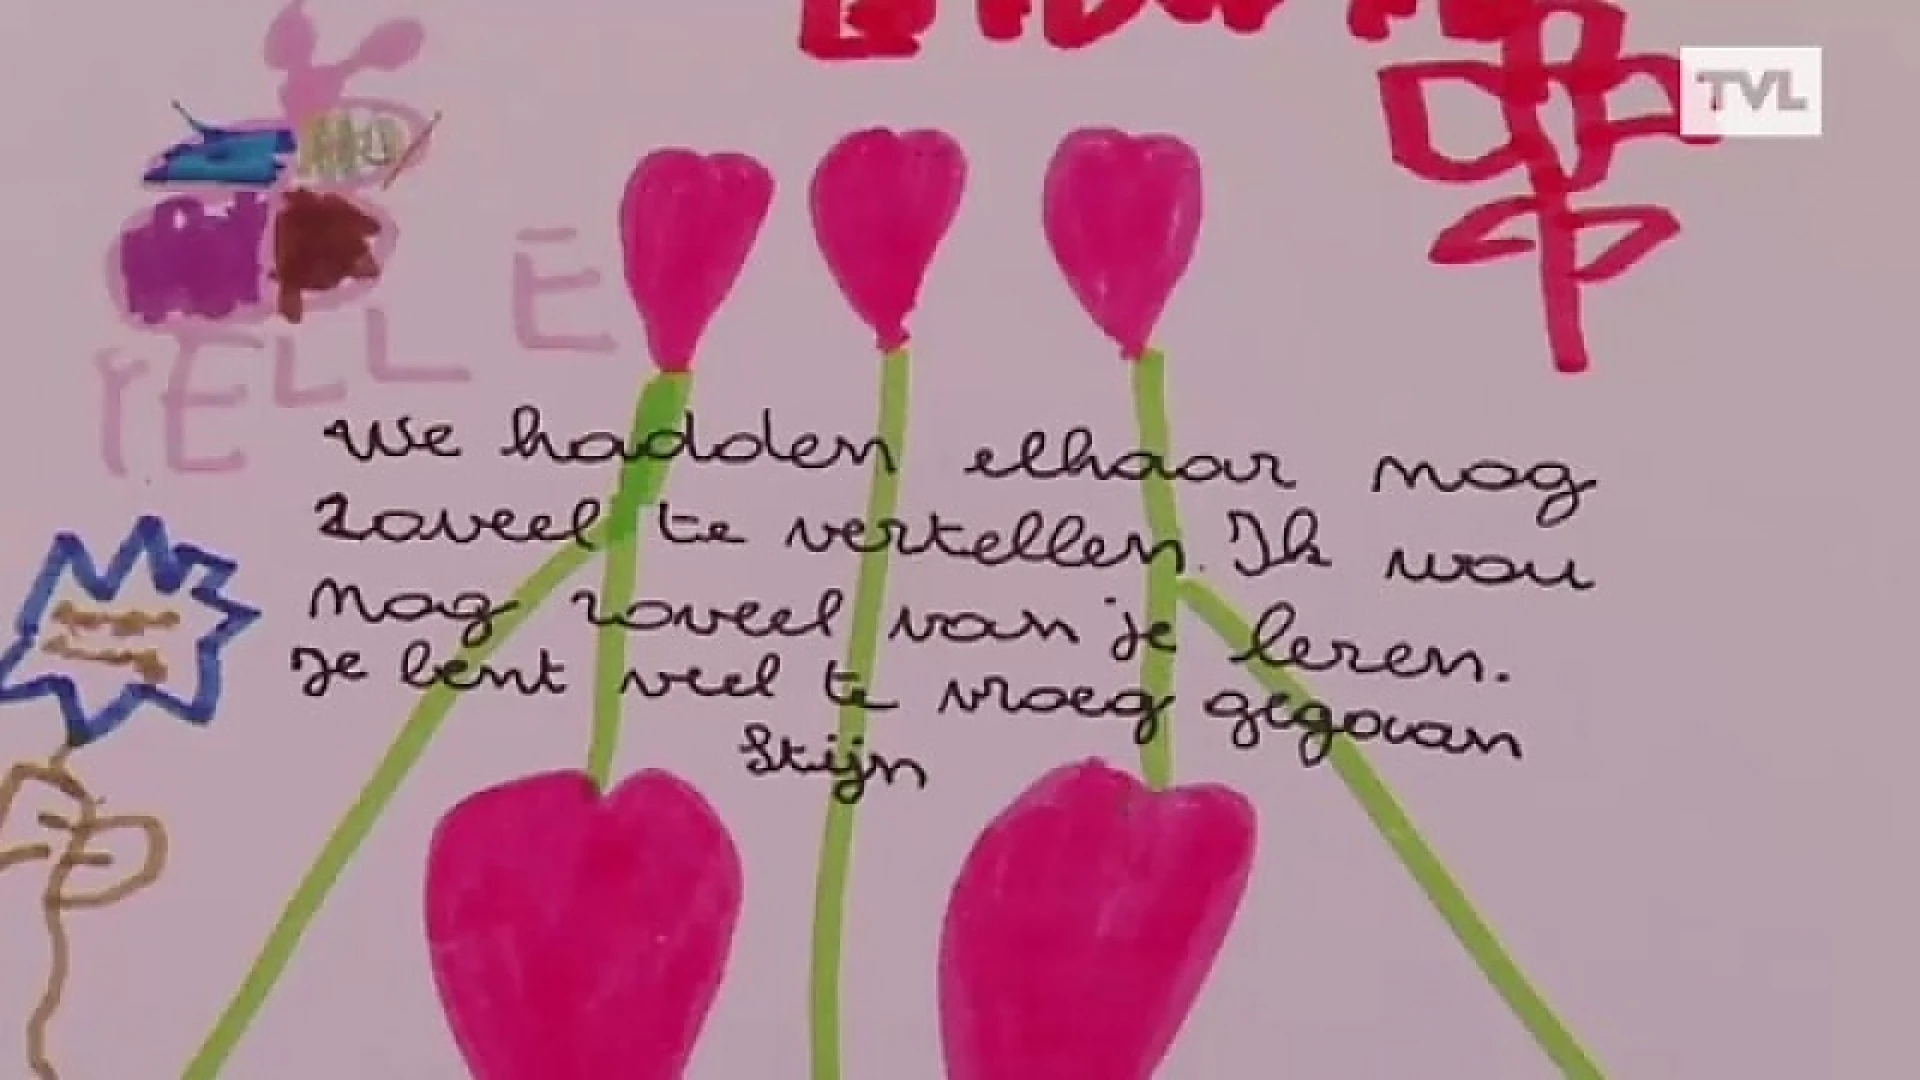 TVL
YELLE
We hadden elkaar nog
zoveel te vertellen. Ik wou
nog zoveel van je leren.
Je bent veel te vroeg gegaan
Stijn